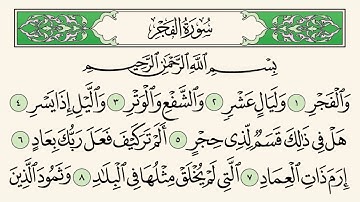 سُورَةُ الفَجْرِ
بِسْمِ ٱللَّهِ ٱلرَّحْمَٰنِ ٱلرَّحِيمِ
وَٱلْفَجْرِ ١ وَلَيَالٍ عَشْرٍ ٢ وَٱلشَّفْعِ وَٱلْوَتْرِ ٣ وَٱلَّيْلِ إِذَا يَسْرِ ٤
هَلْ فِي ذَٰلِكَ قَسَمٌ لِّذِي حِجْرٍ ٥ أَلَمْ تَرَ كَيْفَ فَعَلَ رَبُّكَ بِعَادٍ ٦
إِرَمَ ذَاتِ ٱلْعِمَادِ ٧ ٱلَّتِي لَمْ يُخْلَقْ مِثْلُهَا فِي ٱلْبِلَٰدِ ٨ وَثَمُودَ ٱلَّذِينَ